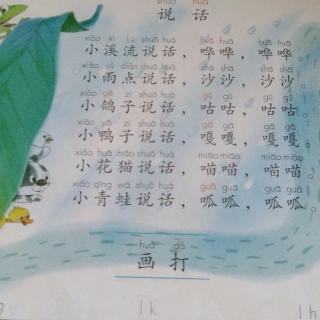 shuō huà
说 话
xiǎo xī liú shuō huà huā huā huā huā
小溪流说话，哗哗，哗哗
xiǎo yǔ diǎn shuō huà shā shā shā shā
小雨点说话，沙沙，沙沙
xiǎo gē zi shuō huà gū gū gū gū
小鸽子说话，咕咕，咕咕
xiǎo yā zi shuō huà gā gā gā gā
小鸭子说话，嘎嘎，嘎嘎
xiǎo huā māo shuō huà miāo miāo miāo miāo
小花猫说话，喵喵，喵喵
xiǎo qīng wā shuō huà guā guā guā guā
小青蛙说话，呱呱，呱呱
huà dǎ
画 打
g l k l h